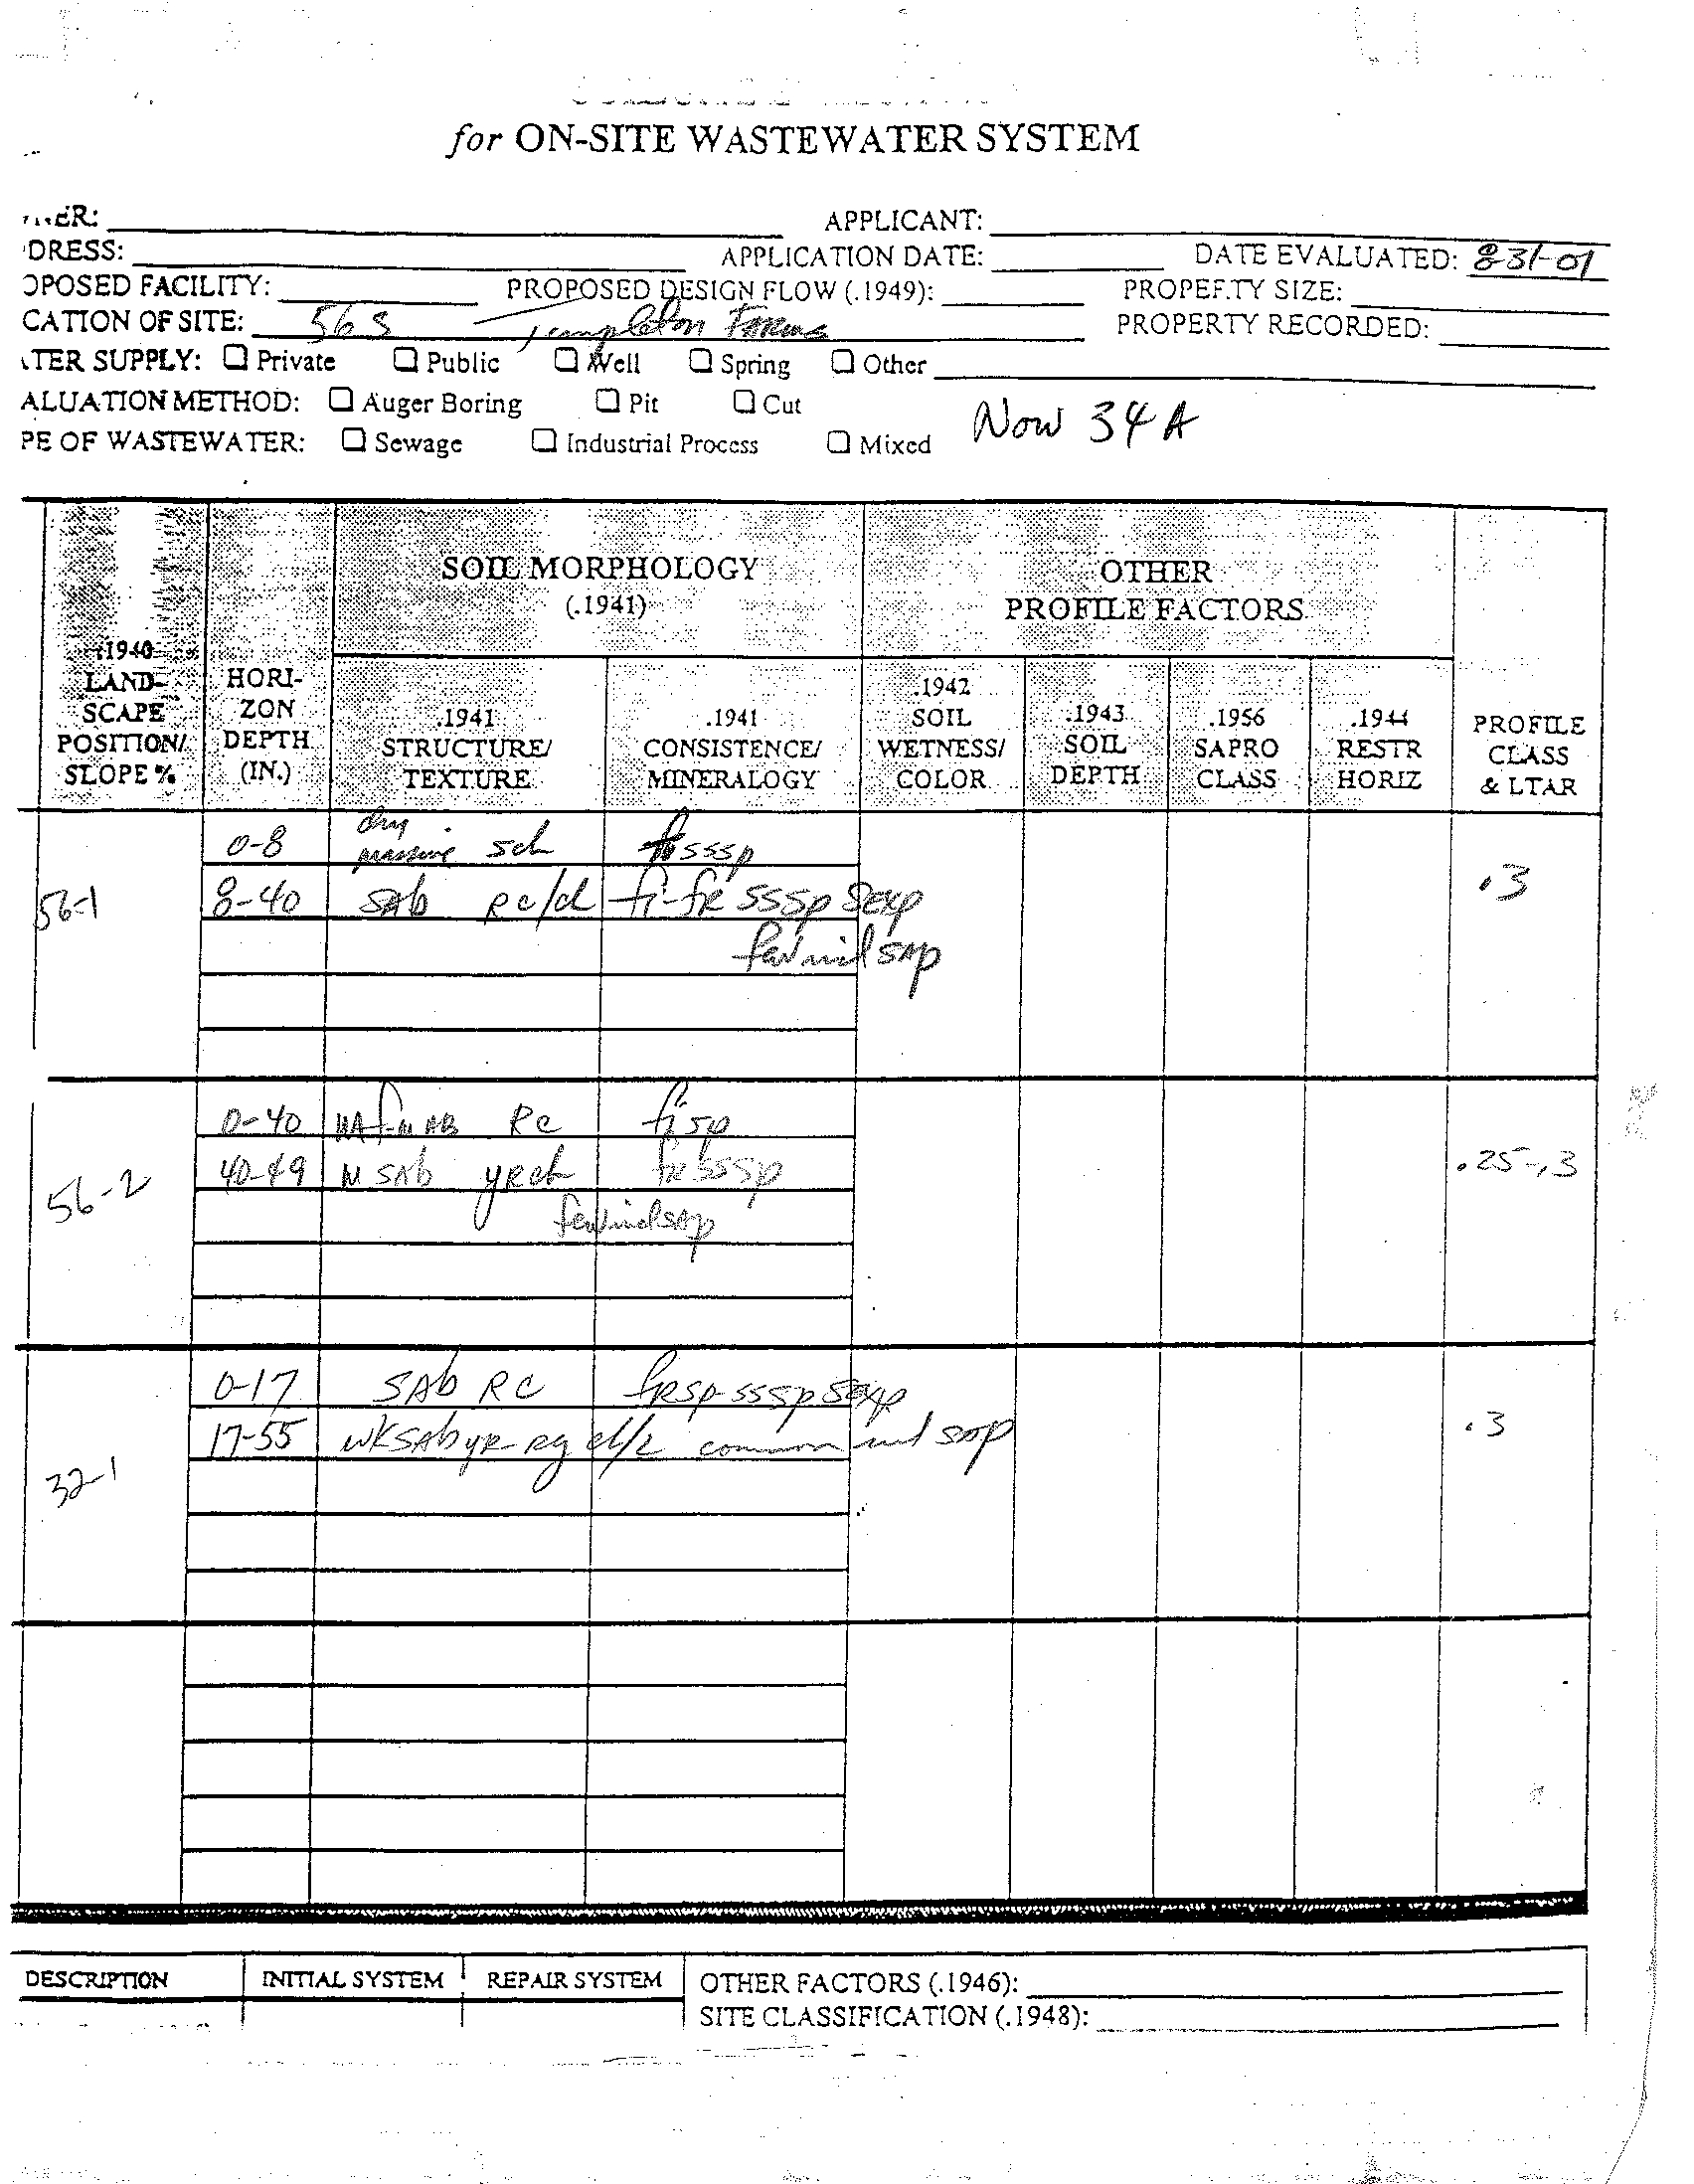 for ON-SITE WASTEWATER SYSTEM
APPLICANT:
DRESS: APPLICATION DATE: DATE EVALUATED: 8-31-01
OPOSED FACILITY: PROPOSED DESIGN FLOW (.1949): PROPERTY SIZE:
CATION OF SITE: 56 S Templeton Farms PROPERTY RECORDED:
TER SUPPLY: Private Public Well Spring Other
ALUATION METHOD: Auger Boring Pit Cut
Now 34A
PE OF WASTEWATER: Sewage Industrial Process Mixed
SOIL MORPHOLOGY
(.1941)
OTHER
PROFILE FACTORS
.1940
LAND-
SCAPE
POSITION/
SLOPE %
HORI-
ZON
DEPTH
(IN.)
.1941
STRUCTURE/
TEXTURE
.1941
CONSISTENCE/
MINERALOGY
.1942
SOIL
WETNESS/
COLOR
.1943
SOIL
DEPTH
.1956
SAPRO
CLASS
.1944
RESTR
HORIZ
PROFILE
CLASS
& LTAR
56-1
0-8 dry massive scl sssp
8-40 SAb Rc/cl fi-fR SSSp SEXP
few mil sap
.3
56-2
0-40 Rc fi sp
40-49 M SAb YRcl fR SSSp
few mil sap
.25-.3
32-1
0-17 SAb RC fRSP-SSSp SEXP
17-55 WKSAb YR-Rg cl/L common mil sap
.3
DESCRIPTION INITIAL SYSTEM REPAIR SYSTEM OTHER FACTORS (.1946):
SITE CLASSIFICATION (.1948):